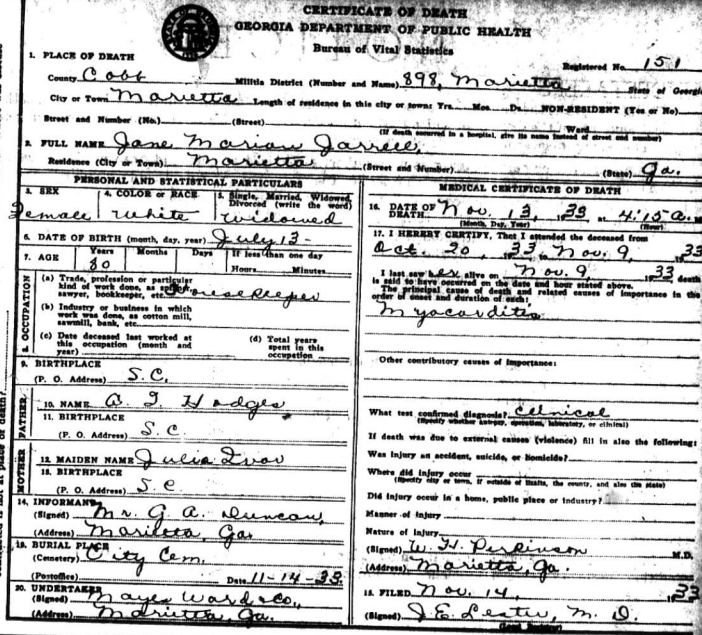 CERTIFICATE OF DEATH
GEORGIA DEPARTMENT OF PUBLIC HEALTH
Bureau of Vital Statistics
Registered No. 151
1. PLACE OF DEATH
County Cobb Militia District (Number and Name) 898, Marietta State of Georgia
City or Town Marietta Length of residence in this city or town: Yrs. Mos. Ds. NON-RESIDENT (Yes or No)
Street and Number (No.) (Street) Ward
(If death occurred in a hospital, give its name instead of street and number)
2. FULL NAME Jane Marian Jarrell,
Residence (City or Town) Marietta (Street and Number) (State) Ga.
PERSONAL AND STATISTICAL PARTICULARS
3. SEX 4. COLOR or RACE 5. Single, Married, Widowed, Divorced (write the word)
Female White Widowed
6. DATE OF BIRTH (month, day, year) July 13-
7. AGE Years Months Days If less than one day
80 Hours Minutes
8. OCCUPATION
(a) Trade, profession or particular
kind of work done, as
sawyer, bookkeeper, etc. Housekeeper
(b) Industry or business in which
work was done, as cotton mill,
sawmill, bank, etc.
(c) Date deceased last worked at
this occupation (month and
year)
(d) Total years
spent in this
occupation
9. BIRTHPLACE
(P. O. Address) S.C.
FATHER
10. NAME Hodges
11. BIRTHPLACE
(P. O. Address) S.C.
MOTHER
12. MAIDEN NAME Julia
13. BIRTHPLACE
(P. O. Address) S C
14. INFORMANT
(Signed) Mr. G. A. Duncan,
(Address) Marietta, Ga.
19. BURIAL PLACE
(Cemetery) City Cem.
(Postoffice) Date 11-14-33
20. UNDERTAKER
(Signed) Mayes Ward & Co,
(Address) Marietta, Ga.
MEDICAL CERTIFICATE OF DEATH
16. DATE OF
DEATH Nov. 13, 33 at 4:15 a. M
(Month, Day, Year) (Hour)
17. I HEREBY CERTIFY, That I attended the deceased from
Oct. 20, 33 to Nov. 9, 33
I last saw her alive on Nov. 9 33 death
is said to have occurred on the date and hour stated above.
The principal cause of death and related causes of importance in the
order of onset and duration of each:
Myocarditis
Other contributory causes of importance:
What test confirmed diagnosis? Clinical
(Specify whether autopsy, operation, laboratory, or clinical)
If death was due to external causes (violence) fill in also the following:
Was injury an accident, suicide, or homicide?
Where did injury occur
(Specify city or town, if outside of limits, the county, and also the state)
Did injury occur in a home, public place or industry?
Manner of injury
Nature of injury
(Signed) W. H. Perkinson M.D.
(Address) Marietta, Ga.
15. FILED Nov. 14, 33
(Signed) J. E. Lester, M. D.